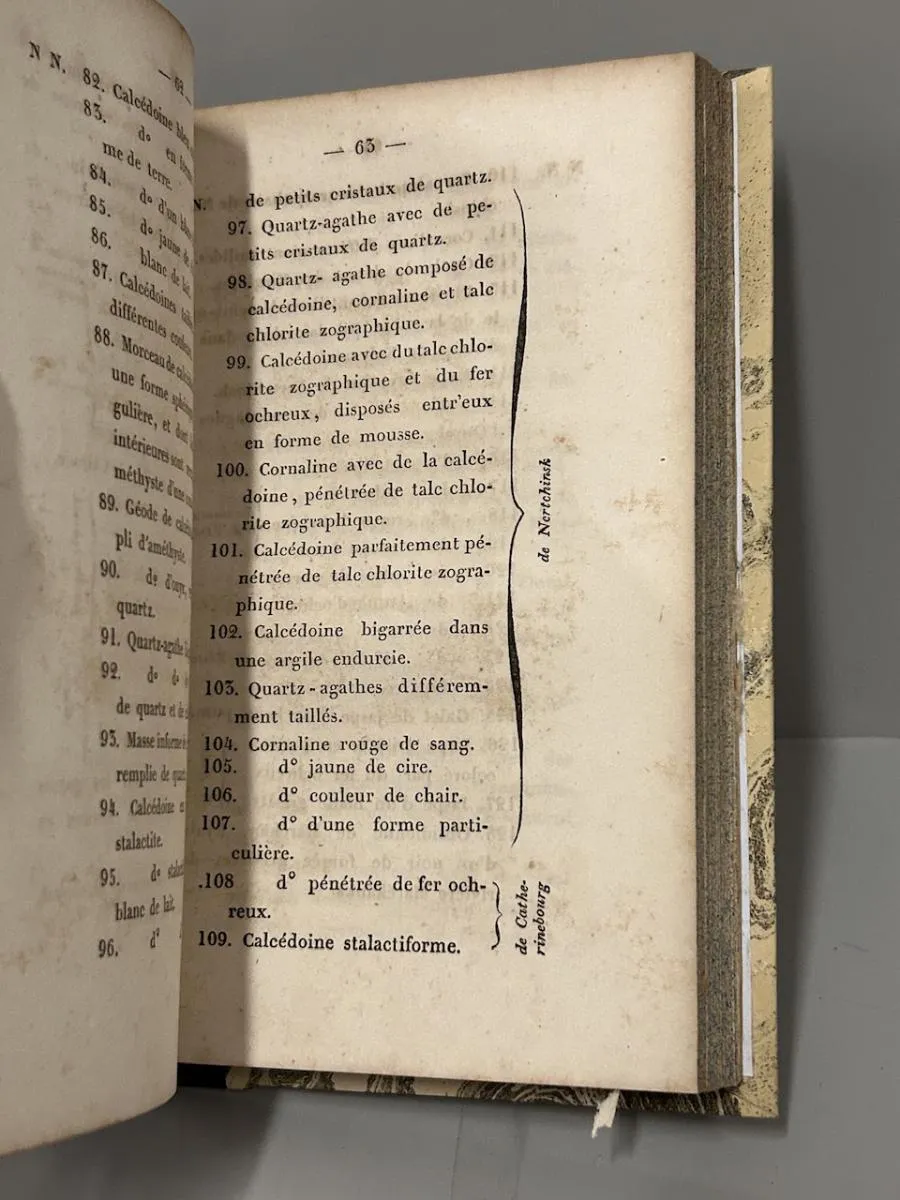 — 62 —
N N. 82. Calcédoine bleu
83. do en
me de terre.
84. do d'un
85. do jaune de
86. blanc de lait.
87. Calcédoines
différentes
88. Morceau de
une forme
gulière, et
intérieures sont
méthyste d'une
89. Géode de
pli d'améthyste.
90. do d'onyx,
quartz.
91. Quartz-agathe
92. do do
de quartz et de
93. Masse informe
remplie de
94. Calcédoine
stalactite.
95. do
blanc de lait.
96. do
— 63 —
N. de petits cristaux de quartz.
97. Quartz-agathe avec de pe-
tits cristaux de quartz.
98. Quartz- agathe composé de
calcédoine, cornaline et talc
chlorite zographique.
99. Calcédoine avec du talc chlo-
rite zographique et du fer
ochreux, disposés entr'eux
en forme de mousse.
100. Cornaline avec de la calcé-
doine, pénétrée de talc chlo-
rite zographique.
101. Calcédoine parfaitement pé-
nétrée de talc chlorite zogra-
phique.
102. Calcédoine bigarrée dans
une argile endurcie.
103. Quartz-agathes différem-
ment taillés.
104. Cornaline rouge de sang.
105. do jaune de cire.
106. do couleur de chair.
107. do d'une forme parti-
culière.
de Nertchinsk
.108 do pénétrée de fer och-
reux.
109. Calcédoine stalactiforme.
de Cathe-
rinebourg